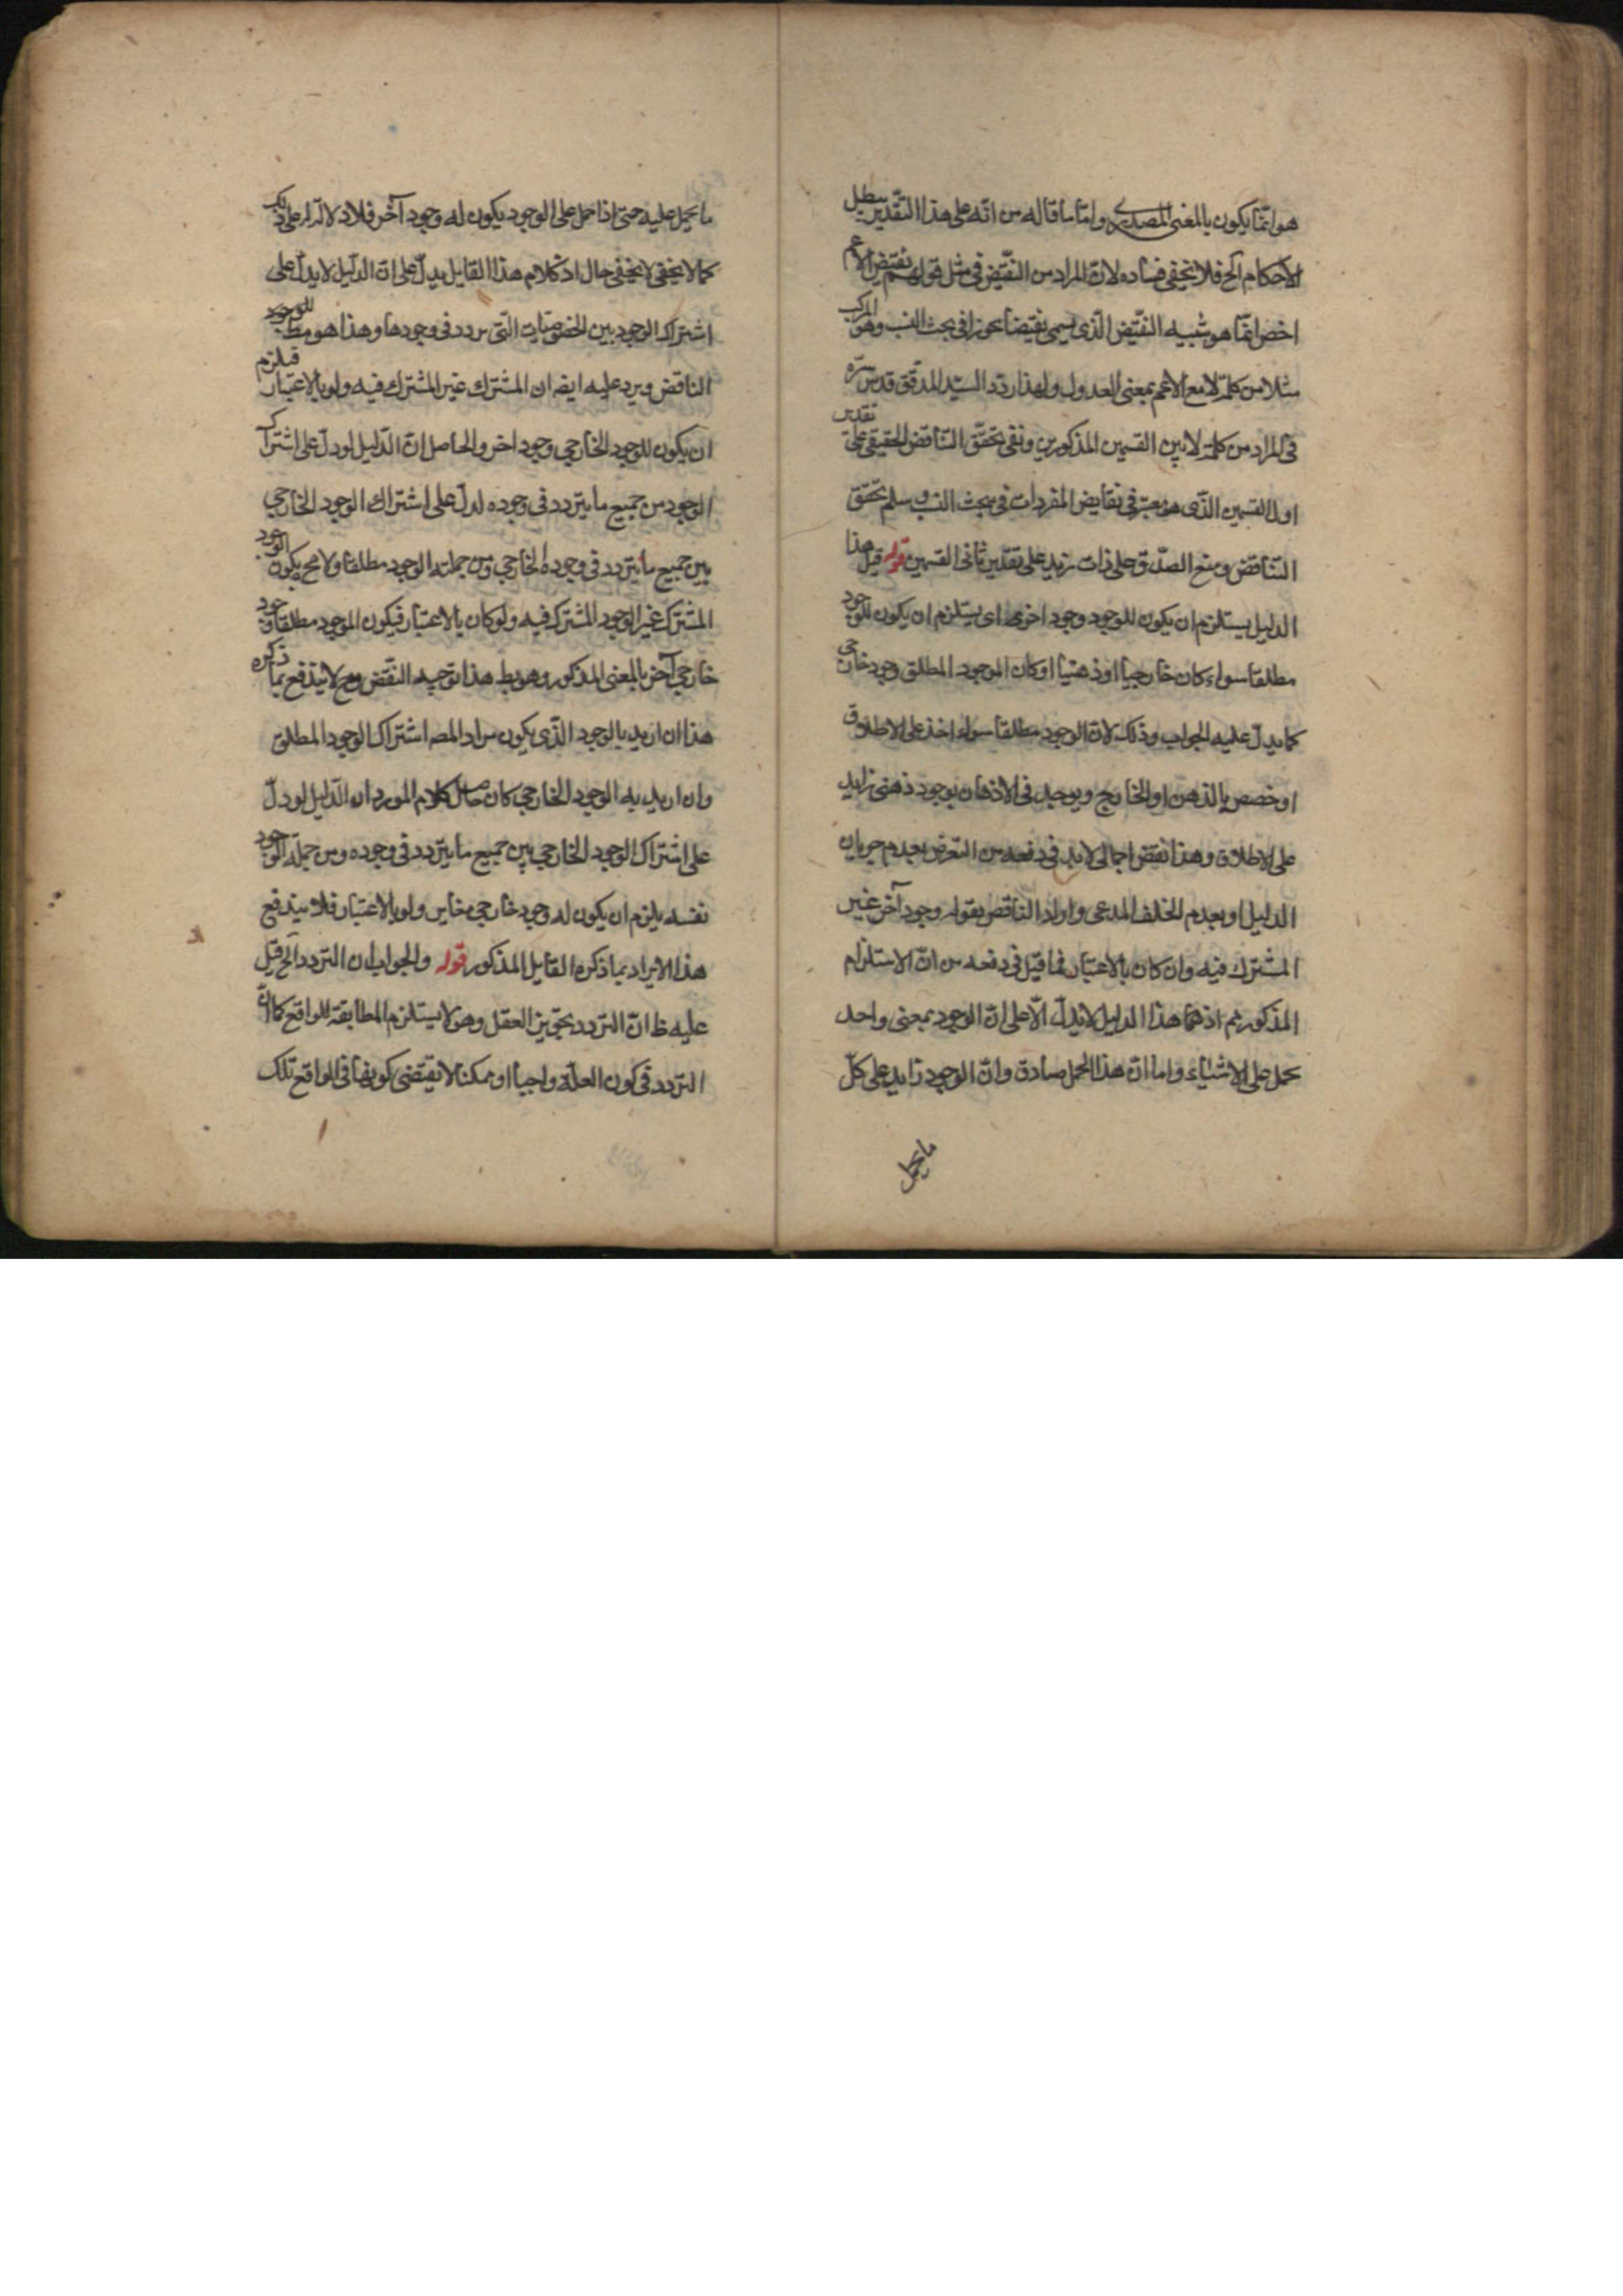 هو انّما يكون بالمعنى المصدرى وامّا ما قاله من انّه على هذا التقدير يبطل
الاحكام الخ فلا يخفى فساده لانّ المراد من النقيض فى مثل قولهم نقيض الاعم
اخص انّما هو شبيه النقيض الّذى يسمى نقيضا تجوزا فى بحث النسب وهو المركب
مثلا من كلمة لا مع الاعم بمعنى العدول ولهذا ردّد السيّد المدقق قدس سرّه
فى المراد من كلمة لا بين القسمين المذكورين ونفى تحقّق التناقض الحقيقى على تقدير
اول القسمين الذّى هو معتبر فى نقايض المفردات فى مبحث النسب وسلم تحقّق
التناقض ومنع الصّدق على ذات زيد على تقدير ثانى القسمين قوله قيل هذا
الدليل يستلزم ان يكون للوجود وجود اخرى اى يستلزم ان يكون للوجود
مطلقا سواء كان خارجيا او ذهنيا او كان الموجود المطلق وجود خارجى
كما يدلّ عليه الجواب وذلك لانّ الوجود مطلقا سواء اخذ على الاطلاق
او خصص بالذهن او الخارج ويوجد فى الاذهان بوجود ذهنى زايد
على الاطلاق وهذا نقض اجمالى لابد فى دفعه من التعرض بعدم جريان
الدليل او بعدم الخلف المدعى واراد الناقض بقوله وجود آخر غير
المشترك فيه وان كان بالاعتبار فما قيل فى دفعه من انّ الاستلزام
المذكور ثم اذ هذا الدليل لا يدلّ الّا على انّ الوجود بمعنى واحد
يحمل على الاشياء واما انّ هذا الحمل صادق وانّ الوجود زايد على كلّ
ما يحمل
ما يحمل عليه حتى اذا حمل على الوجود يكون له وجود آخر فلا دلالة له على ذلك
كما لا يخفى لا يخفى حال اذ كلام هذا القايل يدلّ على انّ الدليل لا يدلّ على
اشتراك الوجود بين الخصوصيات التّى تردد فى وجودها وهذا هو مط للوجود
الناقض ويرد عليه ايضه ان المشترك غير المشترك فيه ولو بالاعتبار فيلزم
ان يكون للوجود الخارجى وجود اخر والحاصل انّ الدّليل لو دلّ على اشتراك
الوجود من جميع ما يتردد فى وجوده لدلّ على اشتراك الوجود الخارجى
بين جميع ما يتردد فى وجوده الخارجى ومن جملته الوجود مطلقا ولا مح يكون الوجود
المشترك غير الوجود المشترك فيه ولو كان بالاعتبار فيكون الموجود مطلقا وجود
خارجى آخر بالمعنى المذكور وهو بط هذا توجيه النقض ومع لا يندفع بما ذكره
هذا ان اريد بالوجود الذّى يكون مراد المصه اشتراك الوجود المطلق
وان اريد به الوجود الخارجى كان حاصل كلام المورد ان الدّليل لو دلّ
على اشتراك الوجود الخارجى بين جميع ما يتردد فى وجوده ومن جملة الوجود
نفسه يلزم ان يكون له وجود خارجى مغاير ولو بالاعتبار فلا يندفع
هذا الايراد بما ذكره القايل المذكور قوله والجواب ان التردد الخ قيل
عليه ظ انّ التردد بتجويز العقل وهو لا يستلزم المطابقة للواقع كما انّ
التردد فى كون العلّة واجبا او ممكنا لا يقتضى كونها فى الواقع تلك